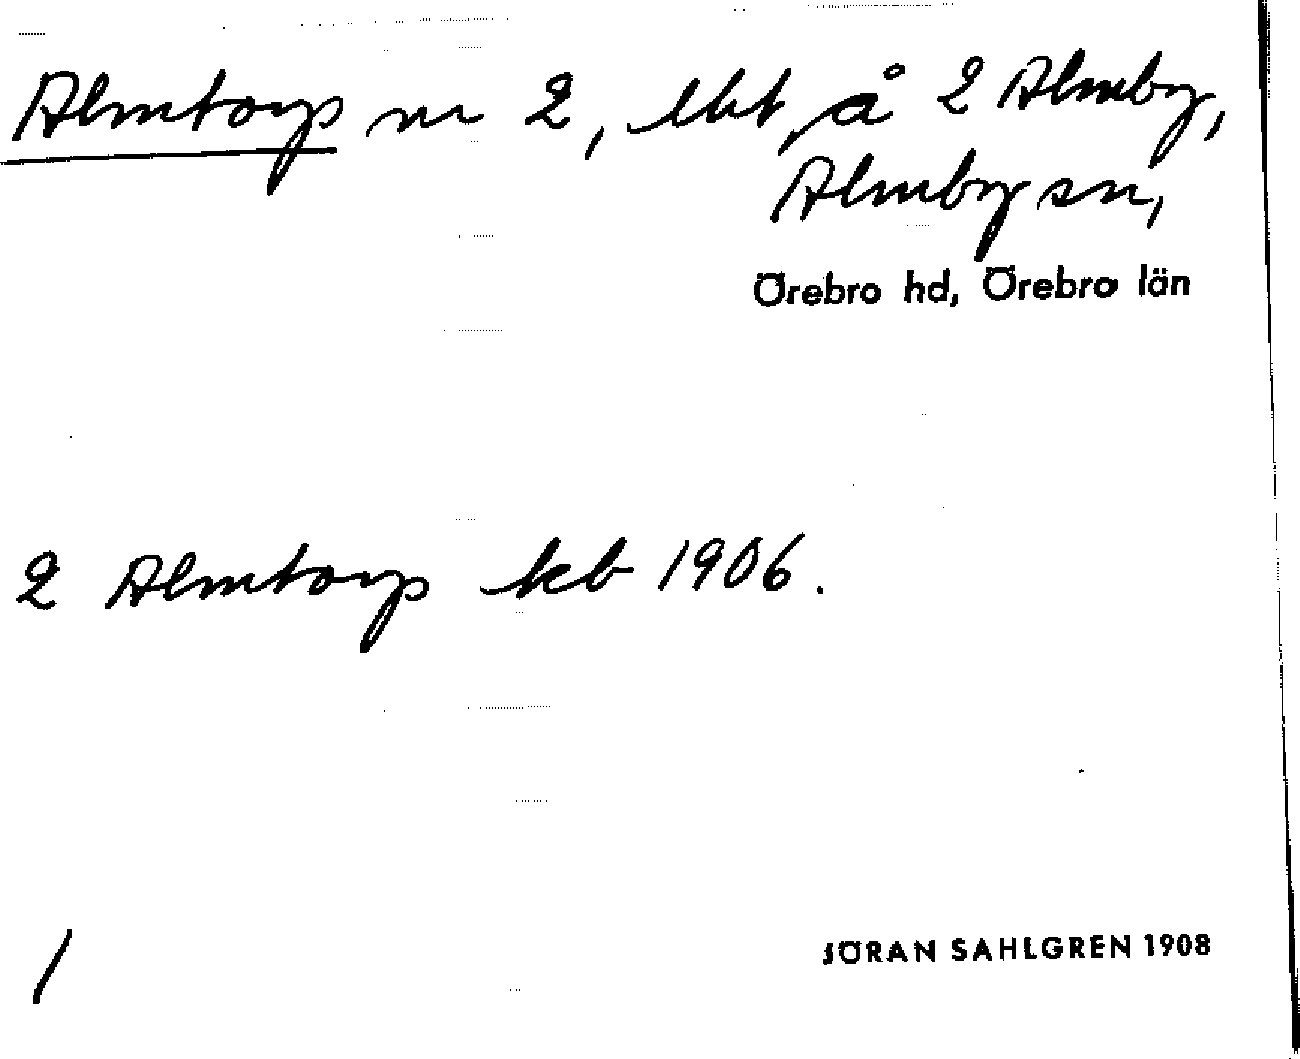 Almtorp nr 2, lht, å 2 Almby,
Almby sn,
Örebro hd, Örebro län
2 Almtorp kb 1906.
/
JÖRAN SAHLGREN 1908